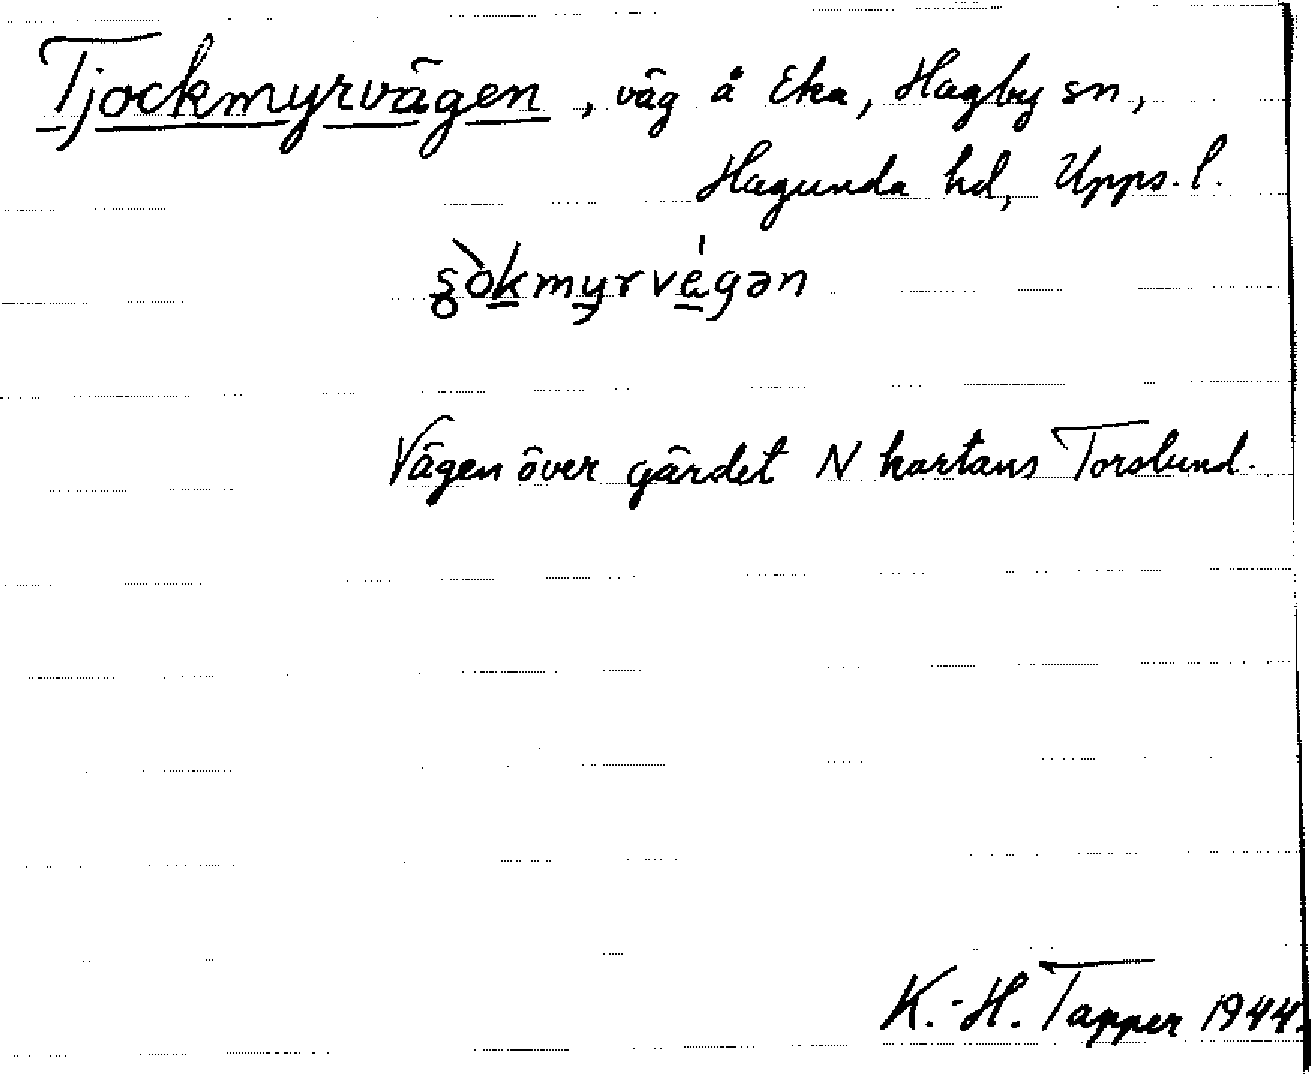 Tjockmyrvägen, väg å Eka, Hagby sn,
Hagunda hd, Upps. l.
s̥òkmyrvégən
Vägen över gärdet N kartans Torslund.
K.-H. Tapper 1944.